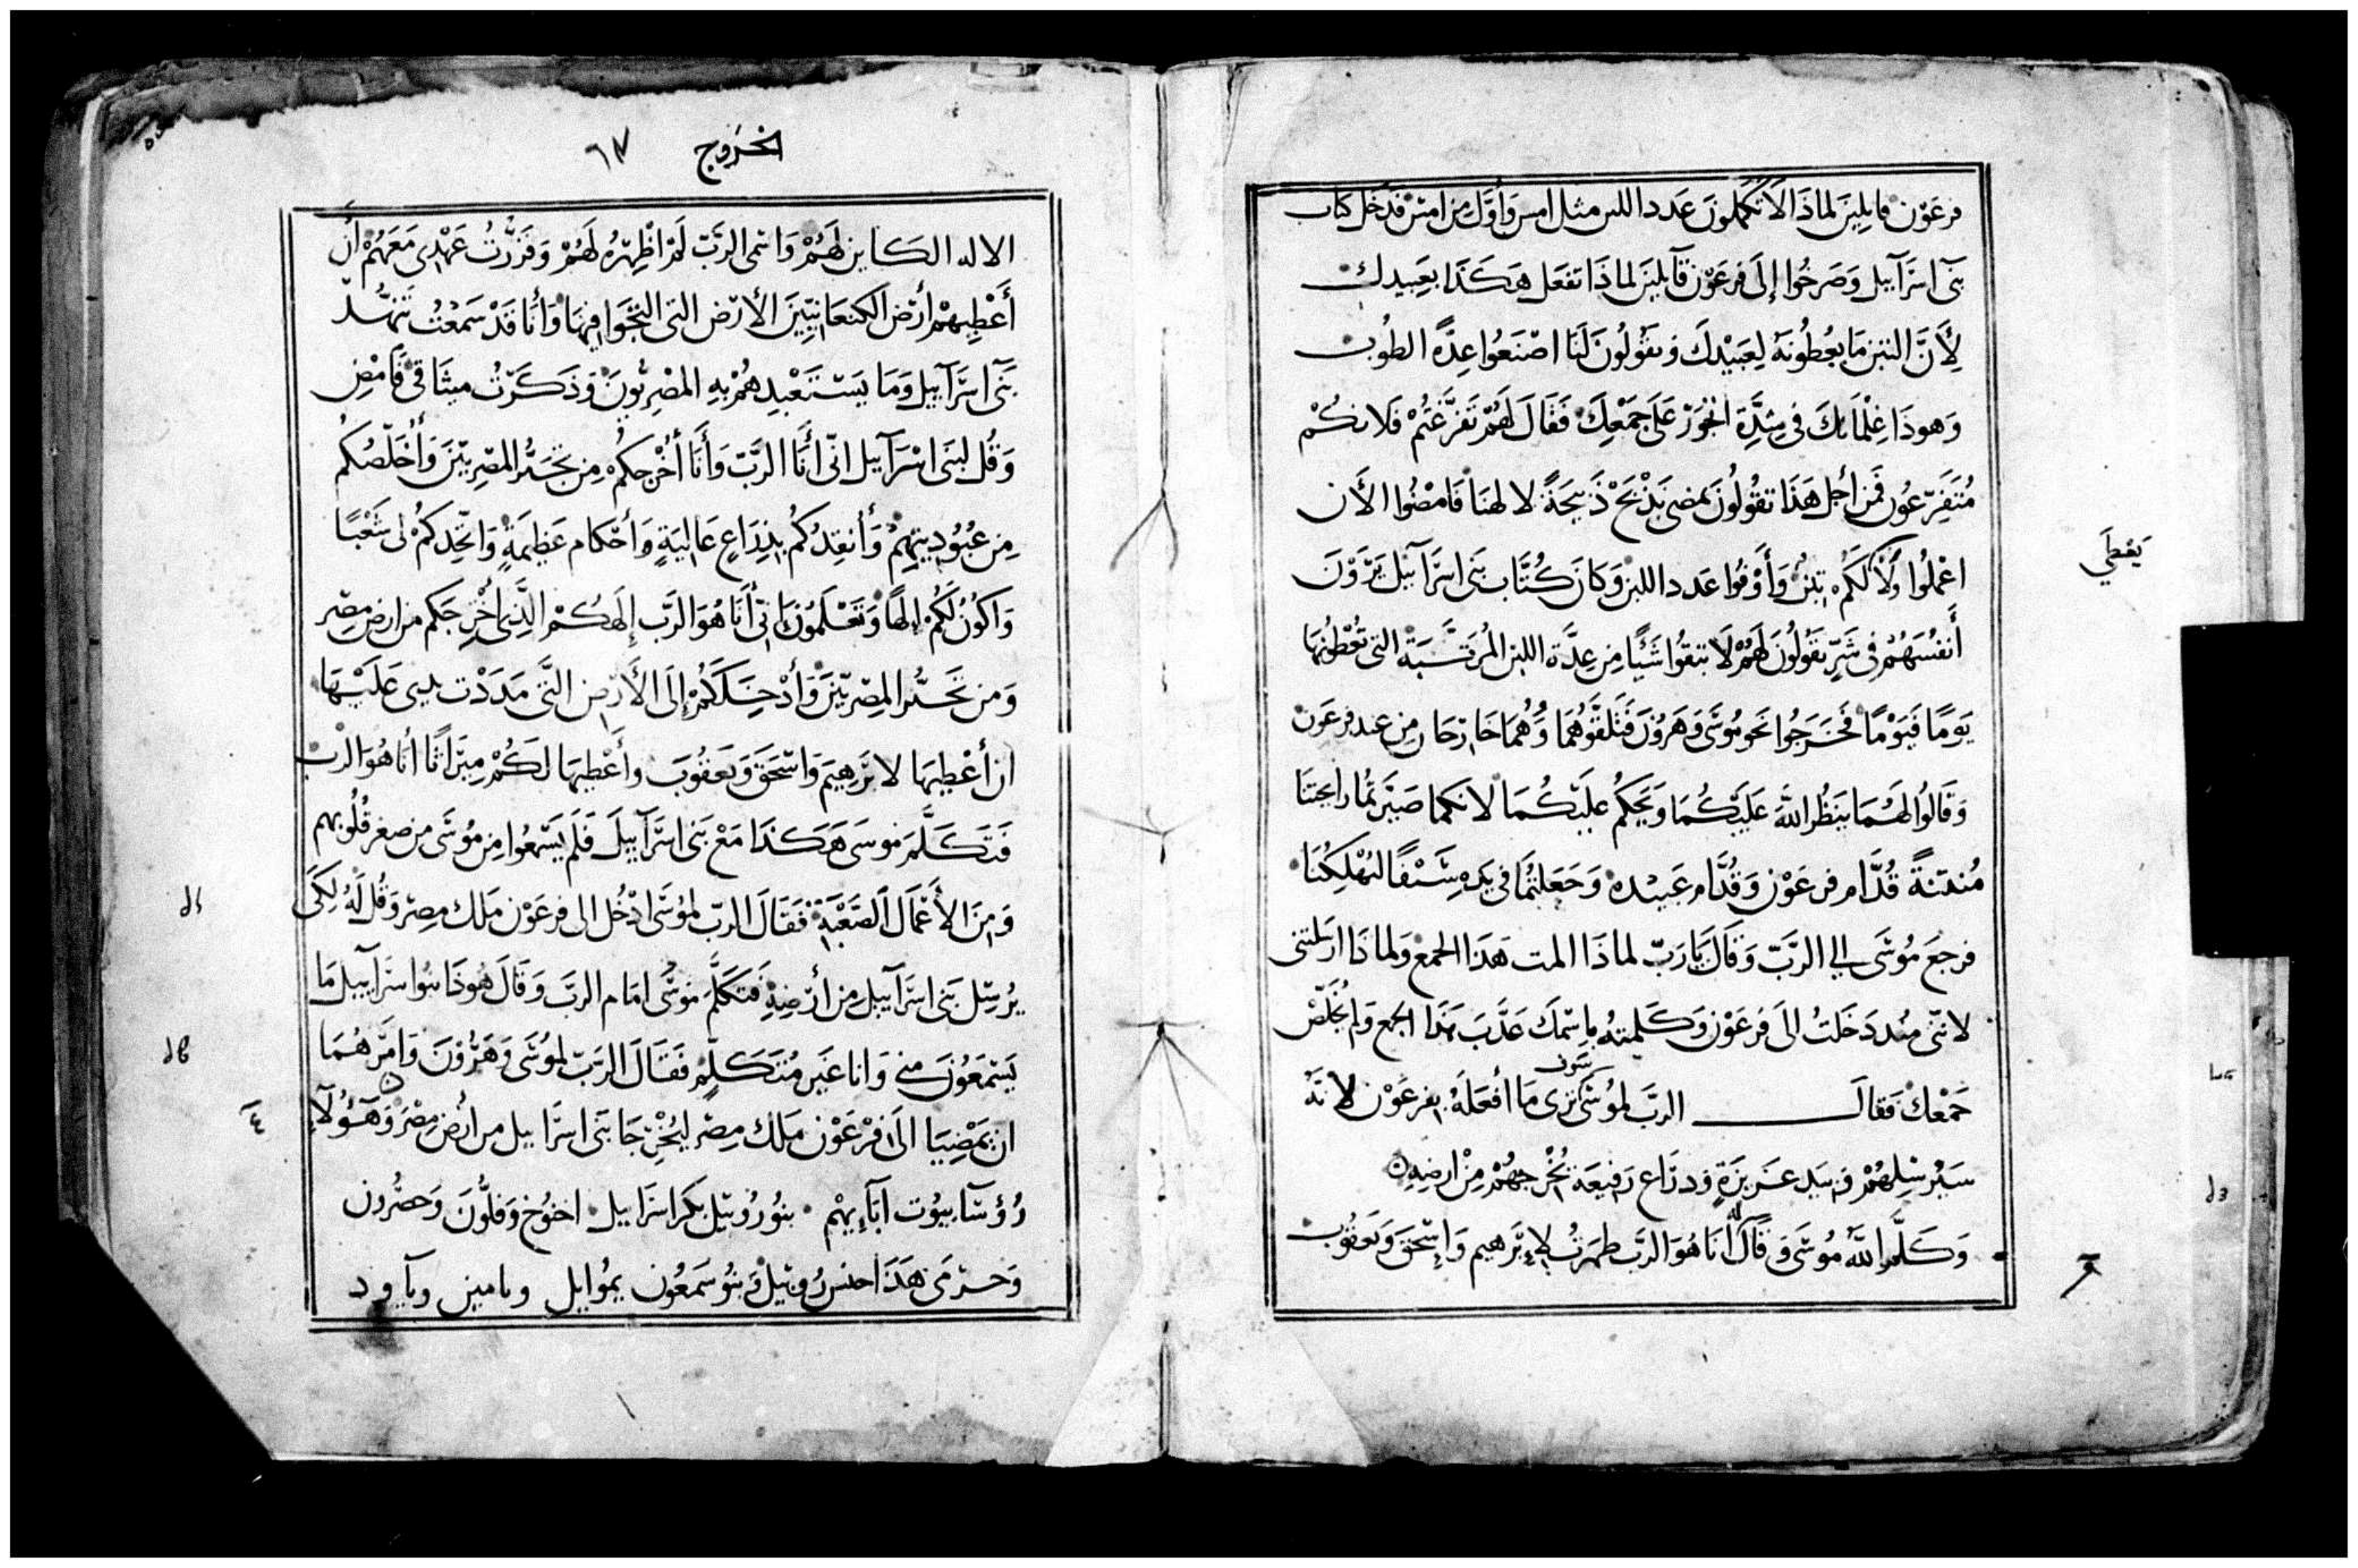 فرعون قايلين لماذا لا تكملون عدد اللبن مثل امس واول من امس فدخل كتاب
بَنى اسرَآييل وَصَرخُوا إلَى فرعَوْن قآيلينَ لماذَا تفعَل هَكَذَا بعَبِيدك
لأَنَّ التبن مَا يعُطُونَهُ لِعَبيْدكَ ويقُولُونَ لَنَا اصْنَعُوا عِدَّة الطُوب
وَهوذَا غِلمَانك فى شِدَّةِ الجَوْر عَلَى جَمْعِكَ فَقَالَ لَهُمْ تَفَرَّغتُمْ فَلانكُمْ
مُتَفَرِّغُون فمَن اجل هَذَا تقُولُونَ نمضى نذْبَحْ ذَبيحَةً لالهنَا فَامْضُوا الأَن
اعْملُوا وَلا لكَمْ تبن وَأَوْفوا عَدد اللبن وَكانَ كُتَّاب بَنى اسرَآييل يَرَوْنَ
أَنفُسَهُمْ فى شَرٍّ يَقُولُونَ لَهُمْ لَا تبقوُا شَئًا مِن عِدَّة اللبن المُرَتَّبَة التى تُعْطونها
يَومًا فَيَوْمًا فَخَرَجُوا نَحو مُوسَى وَهَرُونَ فَتَلَقَّوْهُمَا وَهُمَا خَارْجَان مِن عند فرعَون
وَقَالوُا لَهُمَا يَنظُر اللهُ عَلَيْكُمَا وَيَحكُم عليَكُمَا لانكما صَيَّرتُما رايحتنَا
مُنتنَةً قُدَّام فرعَوْن وَقُدَّام عَبيده وَجَعَلتُمَا فى يَدِهِ سَيْفًا لِيُهْلِكُنَا
فرجعَ مُوسَى الى الرَّبّ وَقَالَ يَارَبّ لماذَا المت هَذَا الجمع وَلماذَا ارسَلتنى
لانّنى مند دَخَلتُ الَى فرعَوْن وَكَلمتهُ باسْمكَ عَذَّبَ هَذَا الجمع وَلم يُخَلّصْ
سَوف
جَمْعكَ فقالَ الربَّ لمُوسَى ترى مَا أَفعَلَهُ بفرعَوْن لانَّهُ
سَيُرسْلهُمْ فى يَد عَزيزَةٍ وذرَاع رَفيعَة يُخْرجهُمْ مِنْ ارضهِ
وَكَلَّم اللهُ مُوسَى وَقَالَ لَهُ أَنَا هُوَ الرَبَّ ظهَرتُ لإبْرَهيم وَإسْحَقَ وَيَعقُوب
يَعْطَي
الخروج ٦٧
الاله الكاين لَهُمْ وَاسمى الرَبّ لَمْ اظْهِرُهُ لَهُمْ وَقَرَّرْتُ عَهْدِى مَعَهُمْ أَن
أَعْطِيهمْ أرْض الكنعَانيّينَ الأَرْض التى التجَوا فِيهَا وَأنَا قَدْ سَمعْتُ تَنَهُّد
بَنى اسرَآييل وَمَا يَستَعْبدهُمْ بهِ المصْرِيُّونَ وَذَكَرْتُ ميثَاقى فَامْضِ
وَقُل لبَنى اسْرَآييل انّى أَنَا الرَبّ وَأَنَا أُخْرجكُم مِن تجَبُّر المصْرِيّينَ وَأُخَلّصُكُم
مِن عبُوُدِيتهِمْ وَأنقِدكُمُ بذرَاعٍ عَاليَةٍ وَأحْكام عَظيمَةٍ وَاتّخِدكُمْ لى شَعْبًا
وَاكوُنُ لَكُمْ الَهًا وَتَعْلَمُونَ انّى أَنَا هُوَ الرَبّ إلَهكُمْ الَّذِى أُخْرِجكم من ارض مِصْر
وَمن تَجَبُّر المِصْريّينَ وَأدْخِلَكُمْ إلَى الأَرْض التَّى مَدَدْت يدى عَلَيْهَا
ان أعْطيهَا لابْرَهيمَ وَاسْحَقَ وَيَعقُوبَ وأَعْطيهَا لَكُمْ مِيرَاثًا أنَا هُوَ الرَّبْ
فَتَكَلَّمَ موسَى هَكذَا مَعْ بَنى اسرَآييلَ فَلَم يَسْمعُوا مِن مُوسَى من صغر قُلُوبهم
وَمِنَ الأَعْمَال الصَعْبَةِ فَقَالَ الربّ لموُسَى ادْخُل الى فرعَوْن مَلك مصِرْ وَقُل لَهُ لِكَى
يُرسِل بَنى اسرَآييل مِن أرْضِهِ فَتكَلَّمَ موُسَى امَام الربّ وَقَالَ هُوذَا بنوا اسرَآييل مَا
يَسْتمَعُونَ منى وَانا غَيْر مُتَكَلِّمٍ فَقَالَ الرَبّ لموُسَى وَهَرُونَ وَامَرَهُمَا
ان يَمْضِيَا الَى فرْعَوْن مَلك مِصْر ليُخْرِجَا بَنى اسرَاييل من أرْض مِصْرَ وَهَؤُلآءِ
رُؤسآ بيُوت آبَآيهِمْ بنوُ رُوبيل بكر اسرَاييل اخنوُخ وَفلُّونَ وَحصْرُون
وَحرْمى هَذَا جنس رُوبيل وَبَنوُ سَمعُون يموُايل ويامين وياود